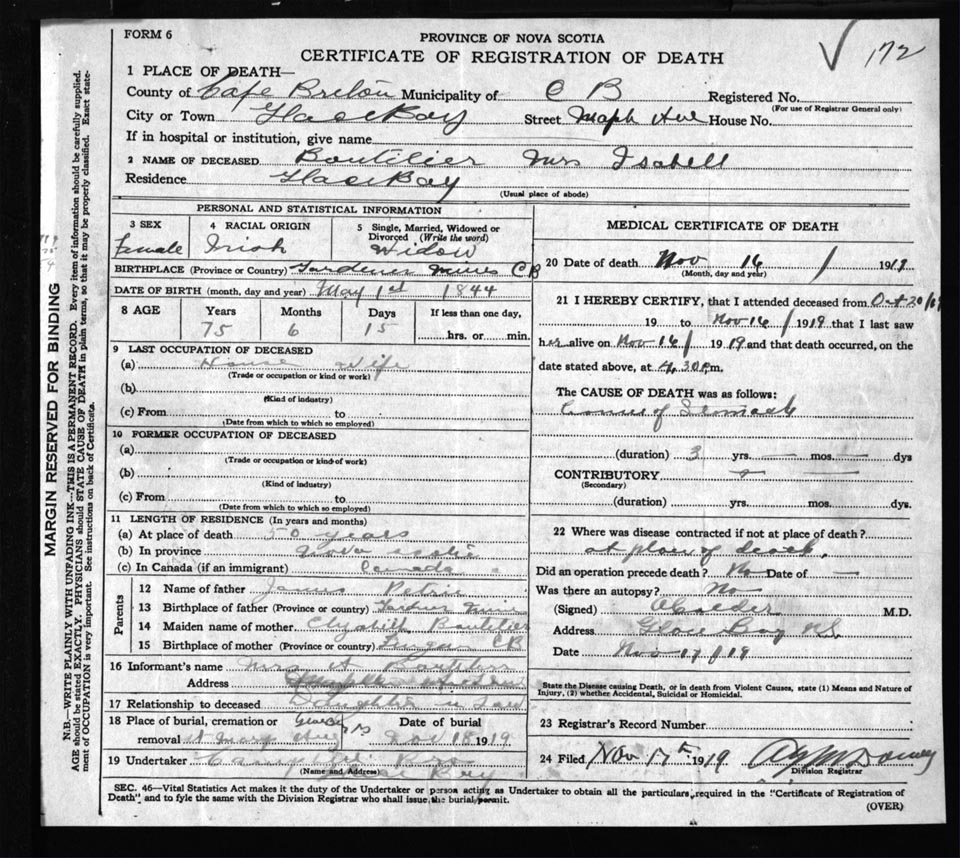 FORM 6
PROVINCE OF NOVA SCOTIA
CERTIFICATE OF REGISTRATION OF DEATH
172
1 PLACE OF DEATH—
County of Cape Breton Municipality of C B Registered No.
(For use of Registrar General only)
City or Town Glace Bay Street Maple Ave House No.
If in hospital or institution, give name
2 NAME OF DECEASED Boutilier Mrs Isabell
Residence Glace Bay
(Usual place of abode)
PERSONAL AND STATISTICAL INFORMATION
3 SEX 4 RACIAL ORIGIN 5 Single, Married, Widowed or Divorced (Write the word)
female Irish Widow
BIRTHPLACE (Province or Country) Gardener Mines CB
DATE OF BIRTH (month, day and year) May 1st 1844
8 AGE Years Months Days If less than one day,
75 6 15 hrs. or min.
9 LAST OCCUPATION OF DECEASED
(a) House Wife
(Trade or occupation or kind or work)
(b)
(Kind of industry)
(c) From to
(Date from which to which so employed)
10 FORMER OCCUPATION OF DECEASED
(a)
(Trade or occupation or kind of work)
(b)
(Kind of industry)
(c) From to
(Date from which to which so employed)
11 LENGTH OF RESIDENCE (In years and months)
(a) At place of death 50 years
(b) In province Nova Scotia
(c) In Canada (if an immigrant) Canada
Parents
12 Name of father James Petrie
13 Birthplace of father (Province or country) Gardner Mine
14 Maiden name of mother Elyzabith Boutilier
15 Birthplace of mother (Province or country) CB
16 Informant's name Mrs A Boutilier
Address
17 Relationship to deceased Daughter in Law
18 Place of burial, cremation or removal St Mary Date of burial Nov 18 1919
19 Undertaker Bay
(Name and Address)
MEDICAL CERTIFICATE OF DEATH
20 Date of death Nov 16 / 1919
(Month, day and year)
21 I HEREBY CERTIFY, that I attended deceased from Oct 20/19
19 to Nov 16 / 1919 that I last saw
her alive on Nov 16 / 1919 and that death occurred, on the
date stated above, at 4.30 P.m.
The CAUSE OF DEATH was as follows:
of Stomach
(duration) 3 yrs. — mos. — dys
CONTRIBUTORY
(Secondary)
(duration) yrs. mos. dys.
22 Where was disease contracted if not at place of death?
at place of death.
Did an operation precede death? No Date of —
Was there an autopsy? No
(Signed) A Calder M.D.
Address Glace Bay NS
Date Nov 17/19
State the Disease causing Death, or in death from Violent Causes, state (1) Means and Nature of
Injury, (2) whether Accidental, Suicidal or Homicidal.
23 Registrar's Record Number
24 Filed Nov 17th 1919
Division Registrar
SEC. 46—Vital Statistics Act makes it the duty of the Undertaker or person acting as Undertaker to obtain all the particulars required in the "Certificate of Registration of
Death" and to fyle the same with the Division Registrar who shall issue the burial permit.
(OVER)
MARGIN RESERVED FOR BINDING
N.B.—WRITE PLAINLY WITH UNFADING INK—THIS IS A PERMANENT RECORD. Every item of information should be carefully supplied.
AGE should be stated EXACTLY. PHYSICIANS should STATE CAUSE OF DEATH in plain terms, so that it may be properly classified. Exact state-
ment of OCCUPATION is very important. See instructions on back of Certificate.